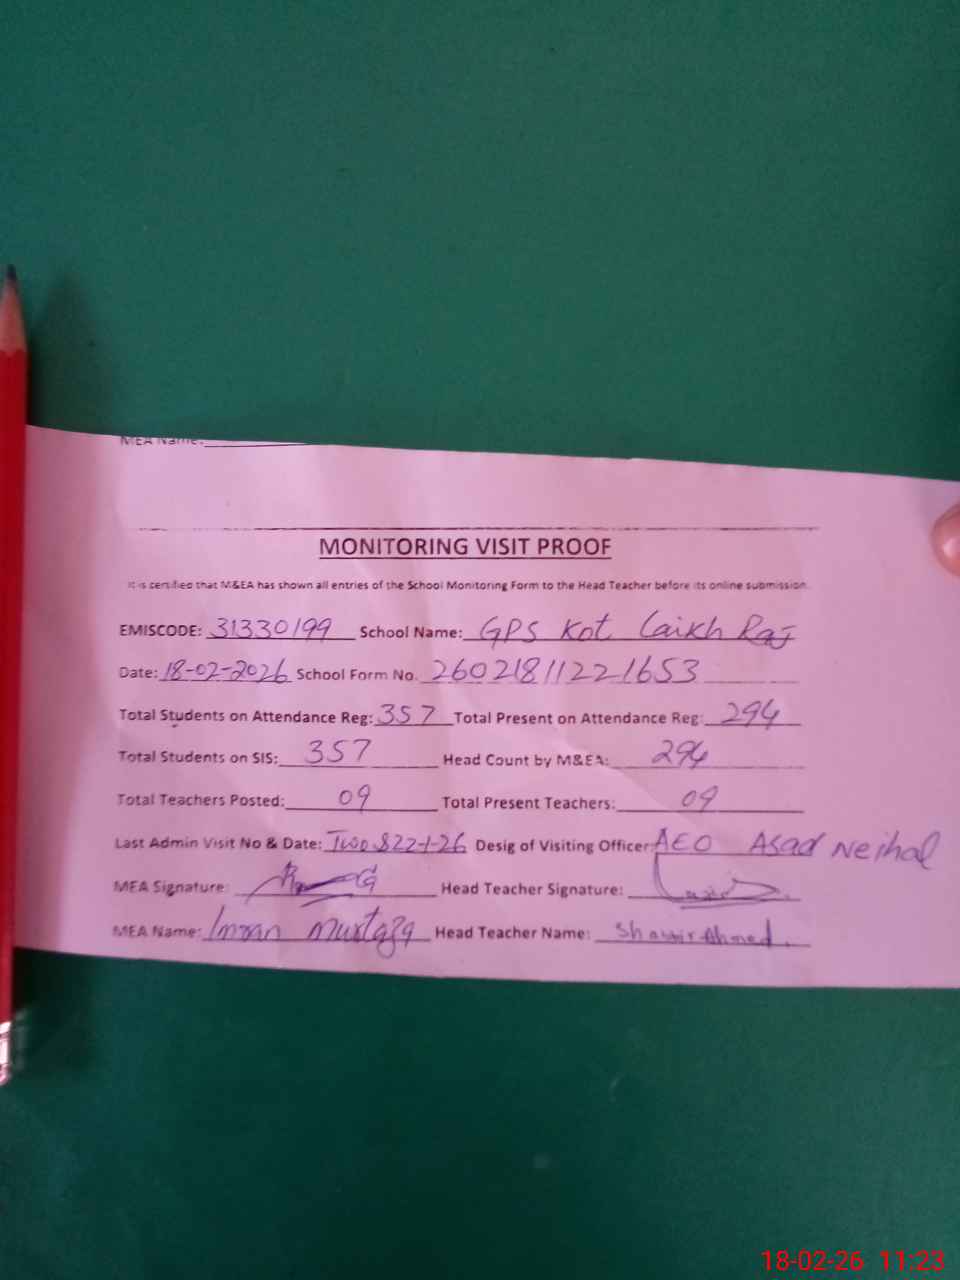 MEA Name:
MONITORING VISIT PROOF
It is certified that M&EA has shown all entries of the School Monitoring Form to the Head Teacher before its online submission.
EMISCODE: 31330199 School Name: GPS Kot Laikh Raj
Date: 18-02-2026 School Form No. 26021811221653
Total Students on Attendance Reg: 357 Total Present on Attendance Reg: 294
Total Students on SIS: 357 Head Count by M&EA: 294
Total Teachers Posted: 09 Total Present Teachers: 09
Last Admin Visit No & Date: Two & 22-1-26 Desig of Visiting Officer: AEO Asad Neihal
MEA Signature: Head Teacher Signature:
MEA Name: Imran Murtaza Head Teacher Name: Ahmed.
18-02-26 11:23